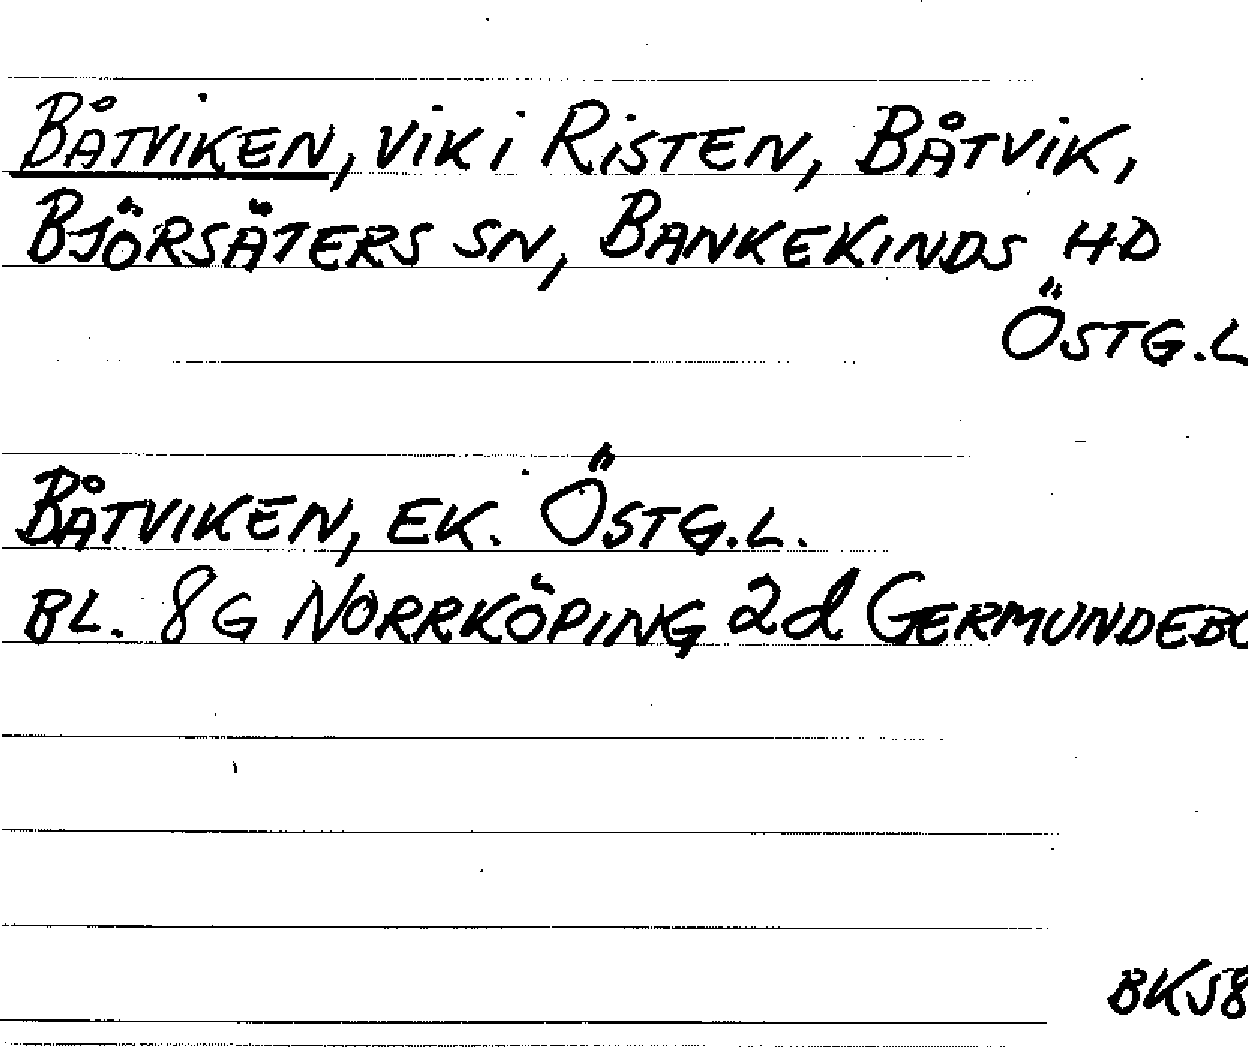 BÅTVIKEN, VIK I RISTEN, BÅTVIK,
BJÖRSÄTERS SN, BANKEKINDS HD
ÖSTG.L
BÅTVIKEN, EK. ÖSTG.L.
BL. 8G NORRKÖPING 2d GERMUNDEBO
BKS8